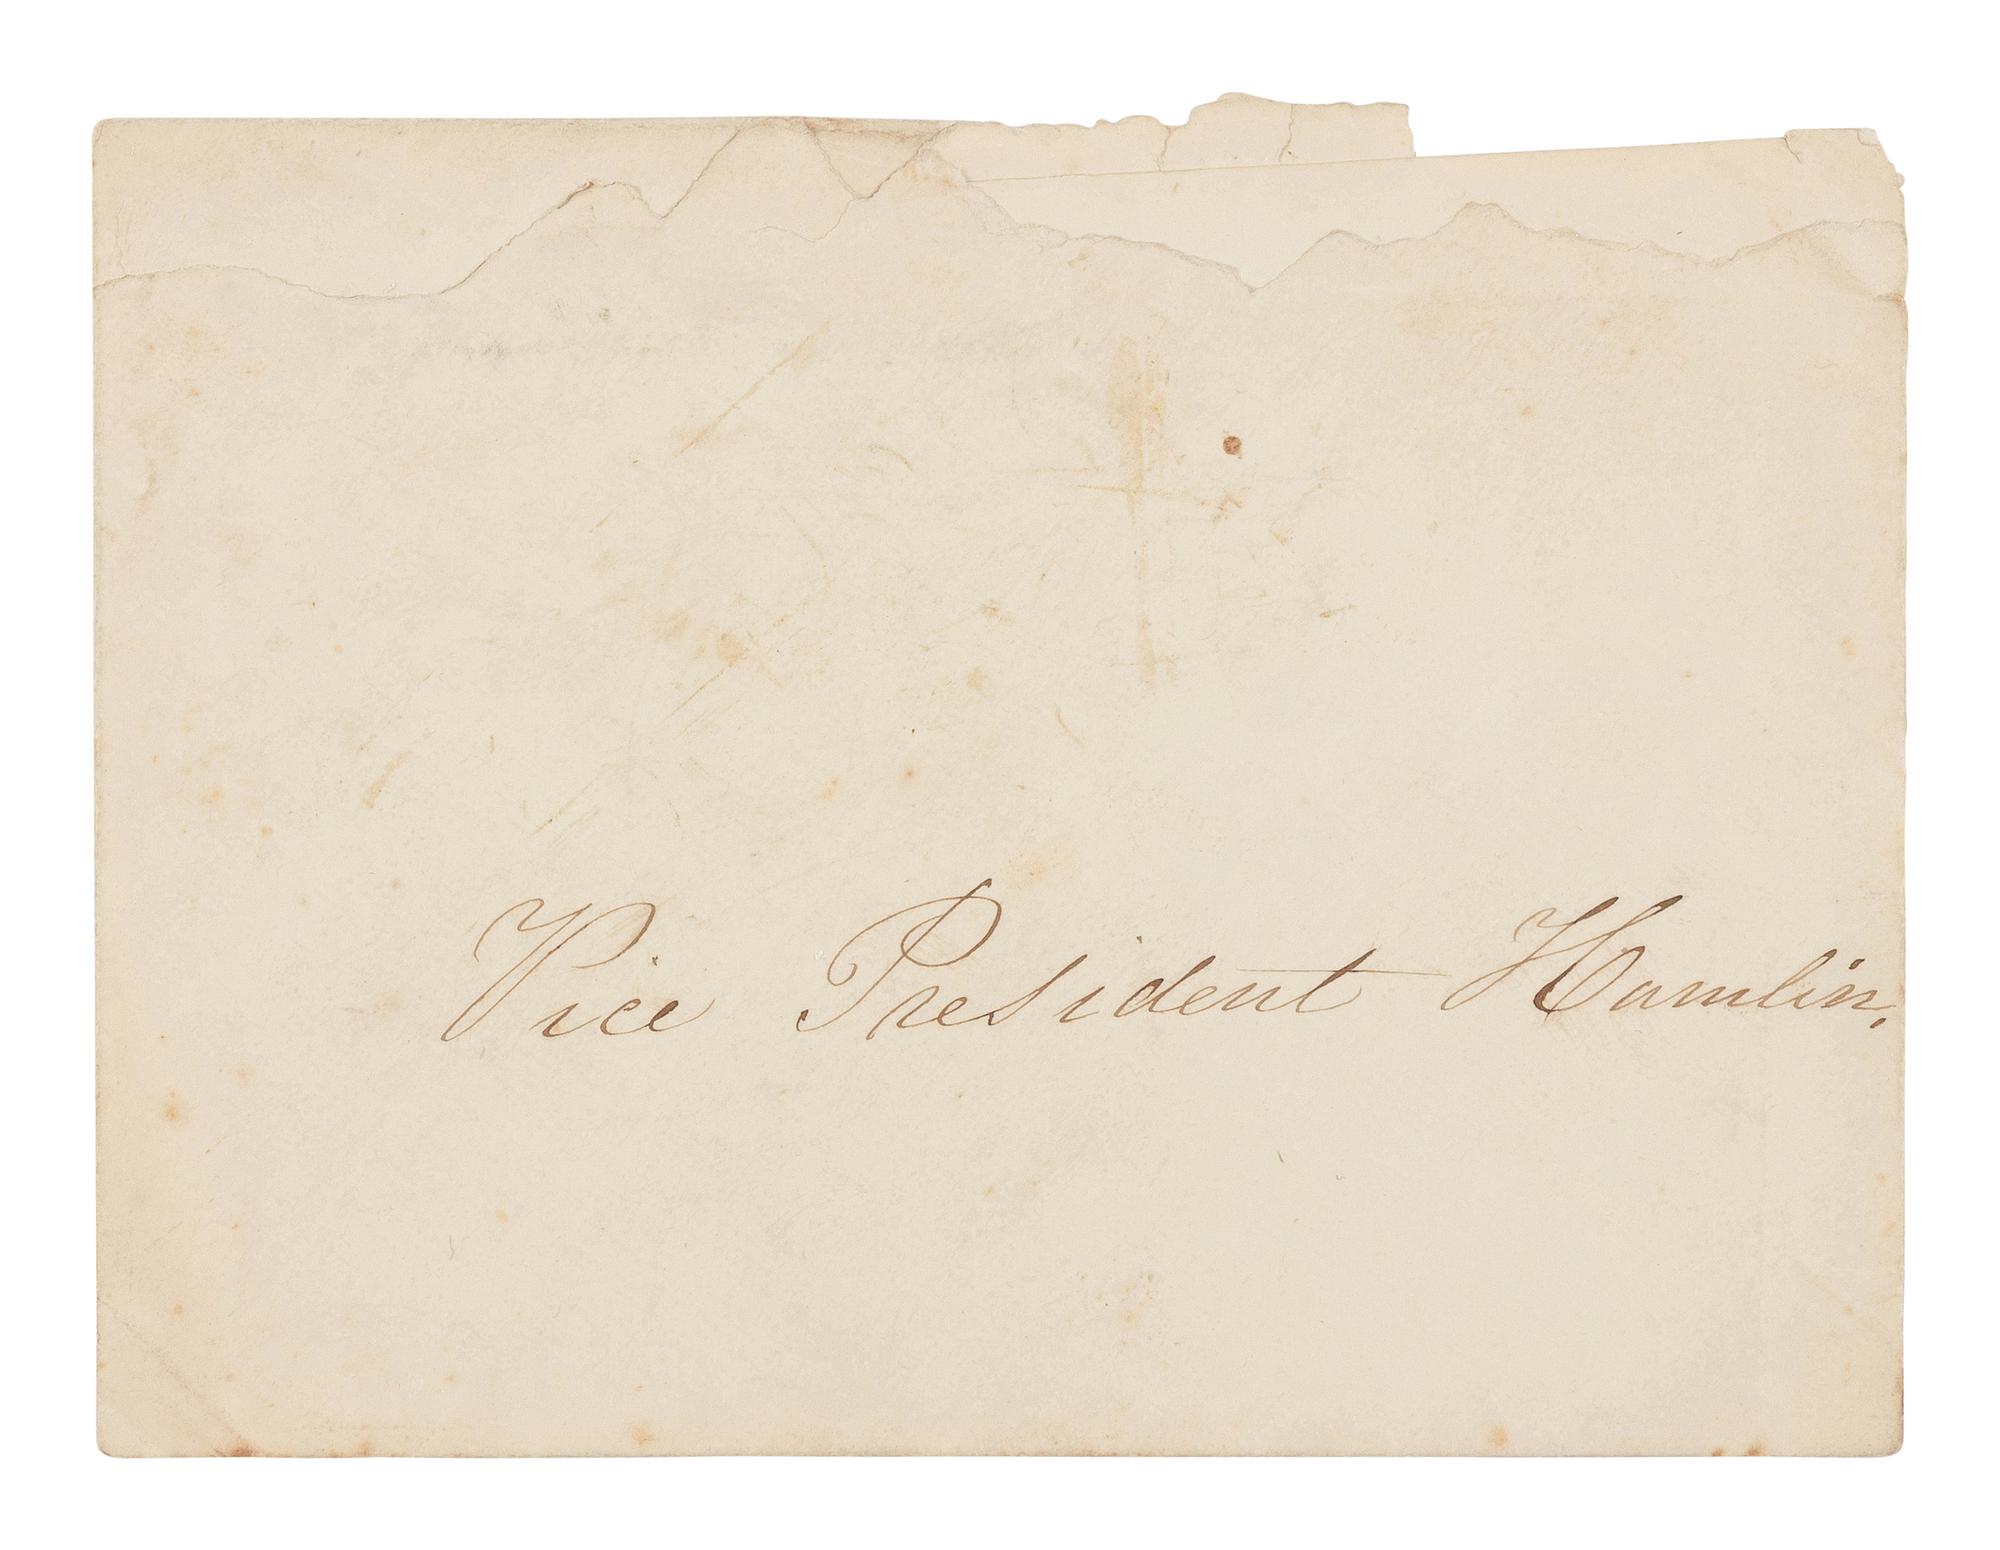 Vice President Hamlin.